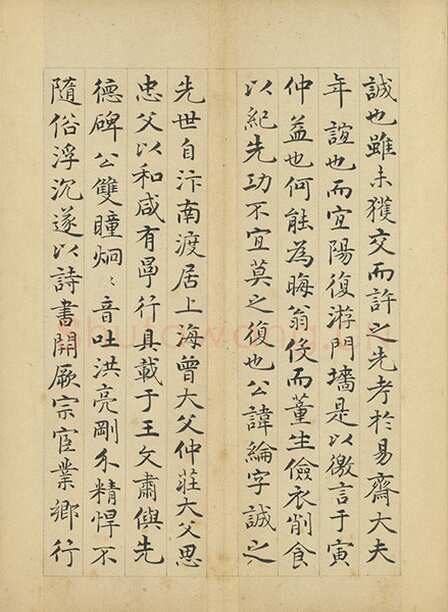 誠也雖未獲交而許之先考於易齋大夫
年誼也而宜陽復游門墻是以徼言于寅
仲益也何能為晦翁役而董生儉衣削食
以紀先功不宜莫之復也公諱綸字誠之
先世自汴南渡居上海曾大父仲莊大父思
忠父以和咸有學行具載于王文肅與先
德碑公雙瞳炯〻音吐洪亮剛介精悍不
隨俗浮沉遂以詩書開厥宗宦業鄉行